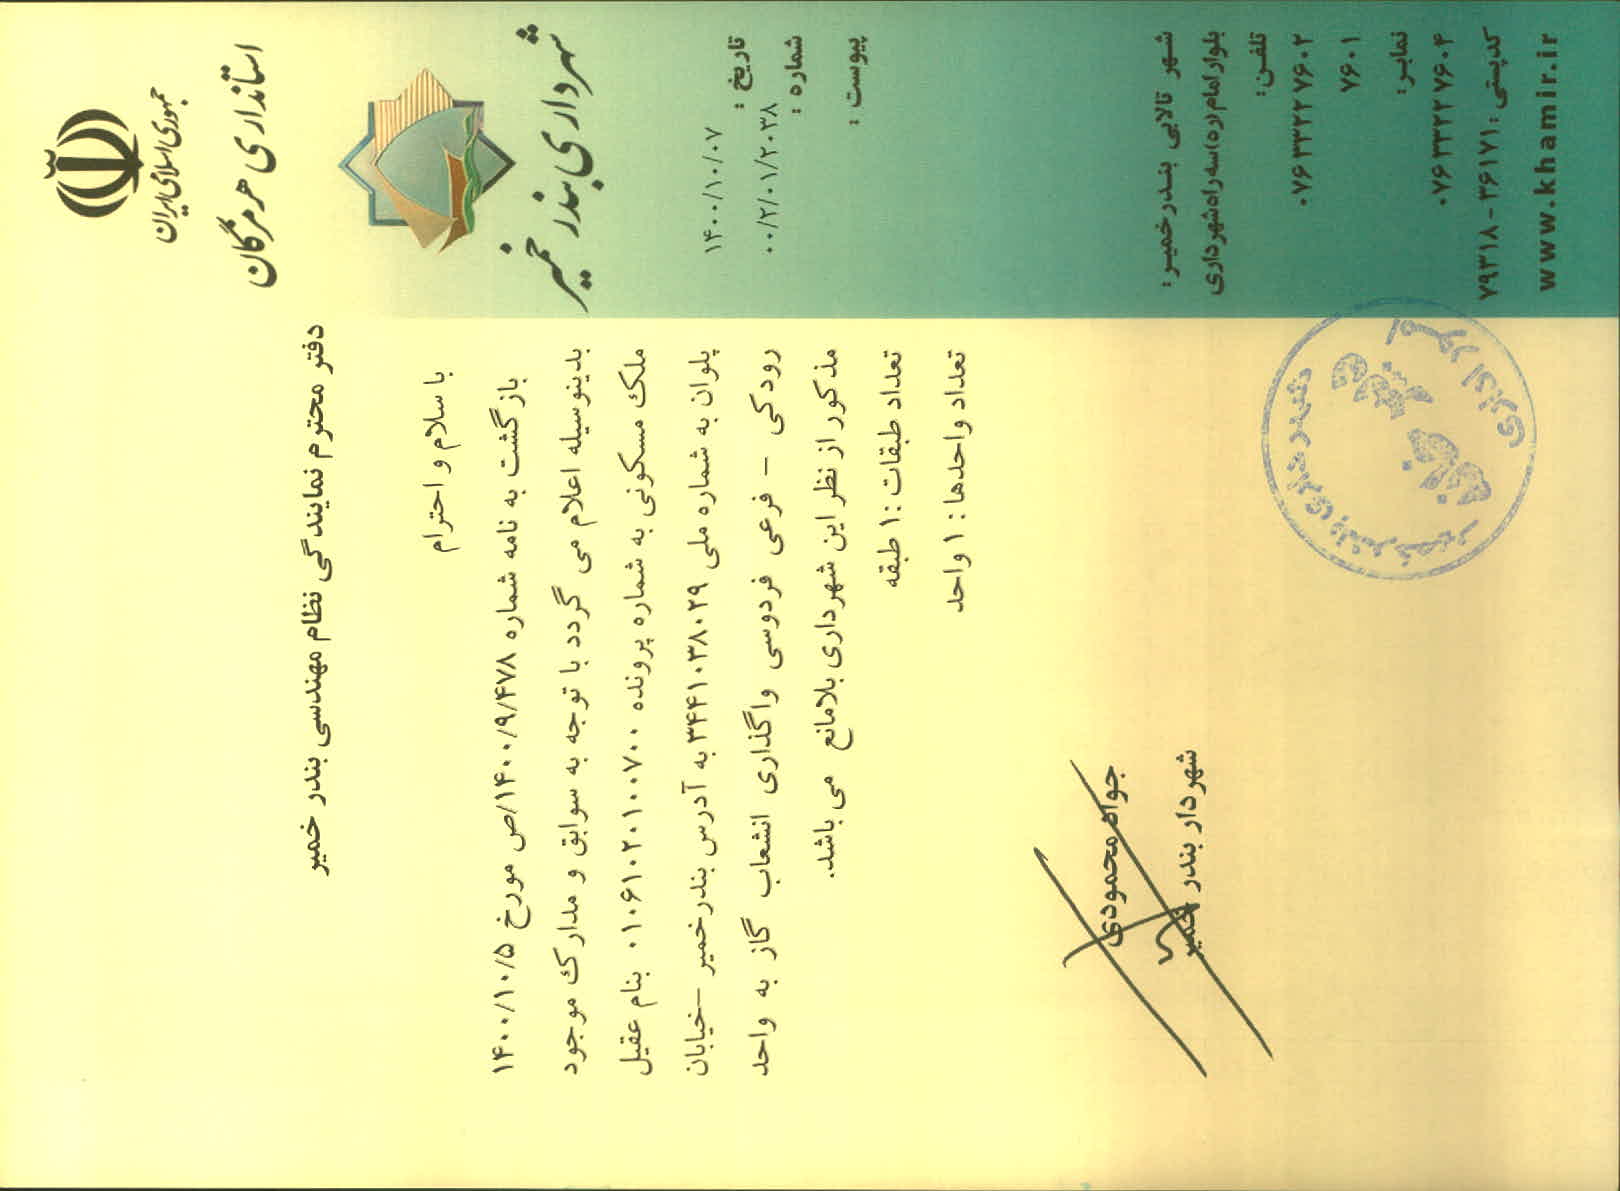 جمهوری اسلامی ایران
استانداری هرمزگان
شهرداری بندر خمیر
تاریخ :
۱۴۰۰/۱۰/۰۷
شماره :
۰۰/۲/۰۱/۲۰۳۸
پیوست :
دفتر محترم نمایندگی نظام مهندسی بندر خمیر
با سلام و احترام
بازگشت به نامه شماره ۱۴۰۰/۹/۴۷۸/ص مورخ ۱۴۰۰/۱۰/۵
بدینوسیله اعلام می گردد با توجه به سوابق و مدارک موجود
ملک مسکونی به شماره پرونده ۰۱۰۶۱۰۲۰۱۰۰۷۰۰ بنام عقیل
پلوان به شماره ملی ۳۴۴۱۰۳۸۰۲۹ به آدرس بندرخمیر –خیابان
رودکی – فرعی فردوسی واگذاری انشعاب گاز به واحد
مذکور از نظر این شهرداری بلامانع می باشد.
تعداد طبقات :۱ طبقه
تعداد واحدها : ۱ واحد
جواد محمودی
شهردار بندر خمیر
شهرداری بندر خمیر
امور اداری
شهر تالابی بندرخمیر:
بلوار امام(ره)سه راه شهرداری
تلفن:
۰۷۶۳۳۲۲۷۶۰۲
۷۶۰۱
نمابر:
۰۷۶۳۳۲۲۷۶۰۴
کدپستی: ۳۶۱۷۱-۷۹۳۱۸
www.khamir.ir